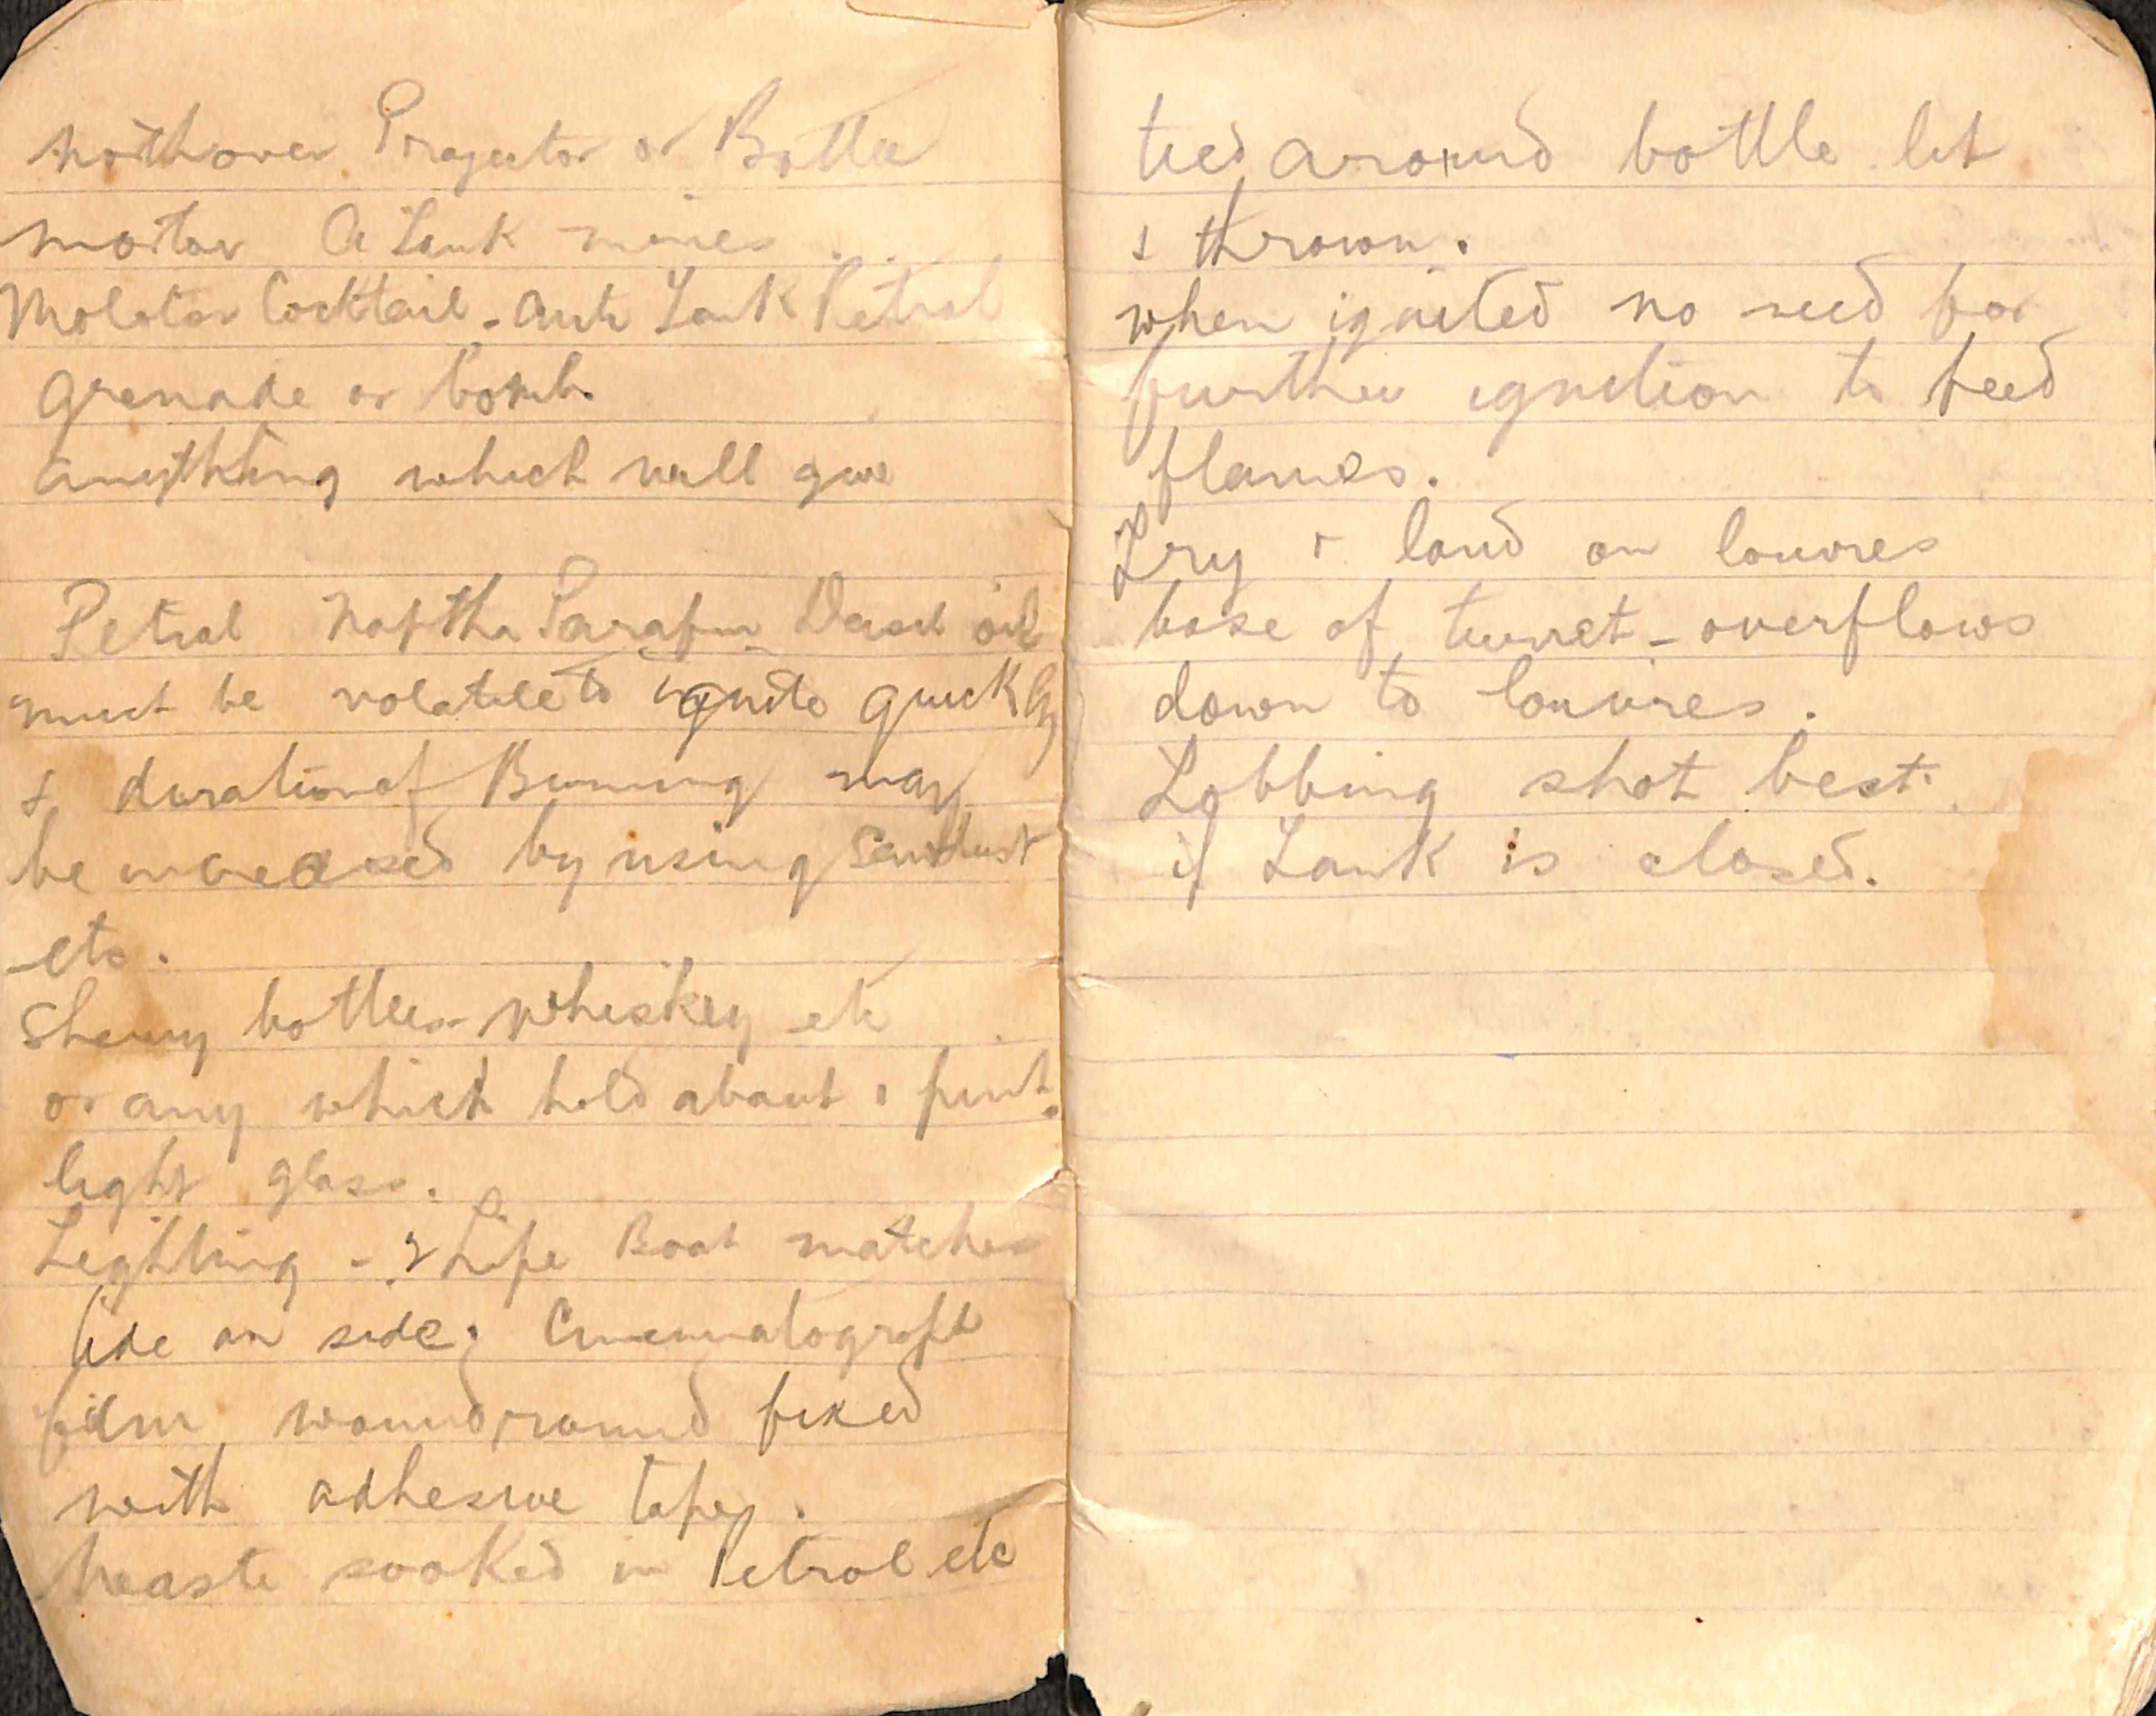 Northover Projector or Bottle
mortar A Tank mines
Molotov Cocktail - Anti Tank Petrol
Grenade or bomb.
anything which will give
Petrol Naptha Parafin Diesel oil
must be volatile to ignite quickly
& duration of Burning may
be increased by using sawdust
etc.
Sherry bottles - whiskey etc
or any which hold about 1 pint.
light glass.
Lighting - 2 Life Boat matches
side on side; Cinematograph
film wound round fixed
with adhesive tape.
Waste soaked in Petrol etc
tied around bottle lit
& thrown.
when ignited no need for
further ignition to feed
flames.
Try & land on louvres
base of turret - overflows
down to louvres.
Lobbing shot best
if Tank is closed.